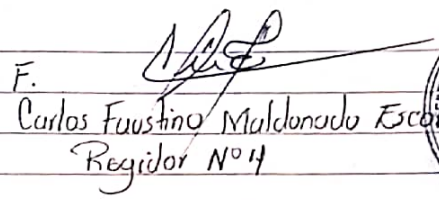 F.
Carlos Faustino Maldonado
Regidor Nº 4